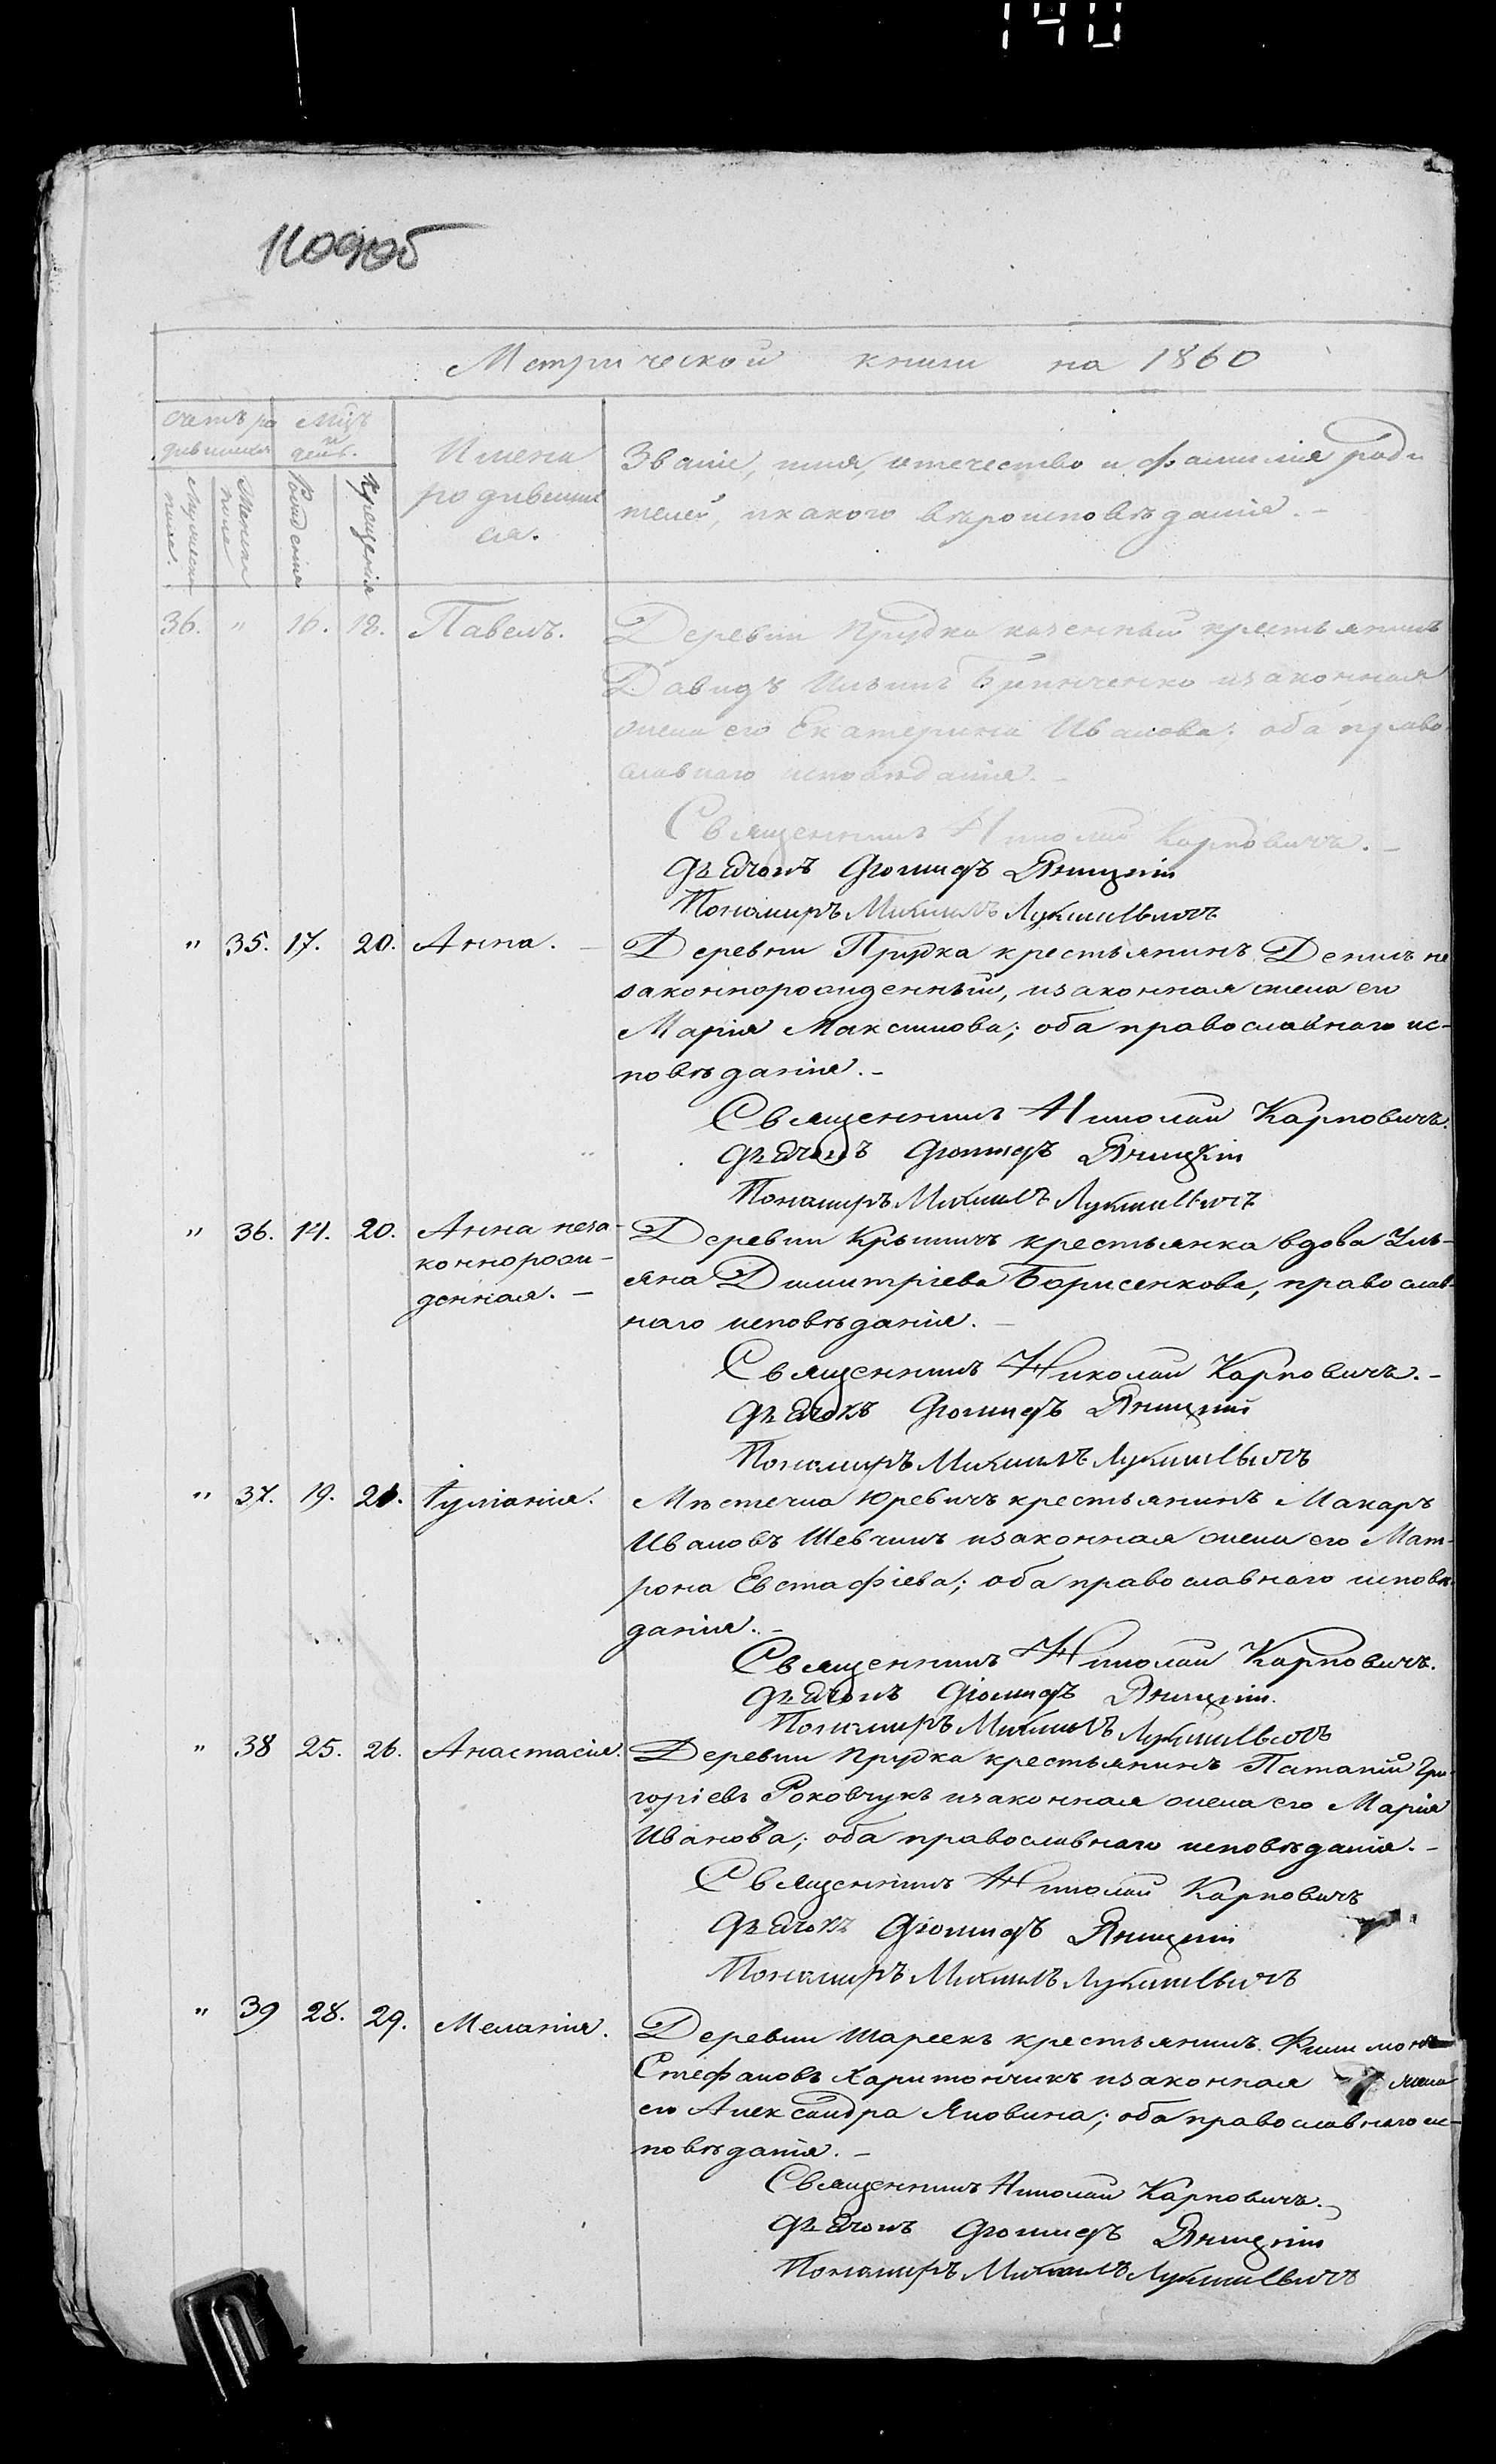 140
Метрической книги на 1860
Счетъ ро
дившихся
Мцъ
и
день.
Имена
родивших
ся.
Званіе, имя, отечество и фамилія роди
телей, и какого вѣроисповѣданія. -
Мужеска
пола.
Женска
пола
Рожденія
Крещенія
36. " 16. 18. Павелъ.
Деревни Прудка казенный крестьянинъ
Давидъ Ильинъ Гринченко и законная
жена его Екатерина Иванова; оба право
славнаго исповѣданія. -
Священникъ Николай Карповичъ. -
Дьячокъ Діомидъ Яницкій
Пономарь Михаилъ Лукашевичъ
" 35. 17. 20. Анна. -
Деревни Прудка крестьянинъ Денисъ не
законнорожденный, и законная жена его
Марія Максимова; оба православнаго ис-
повѣданія. -
Священникъ Николай Карповичъ.
Дьячокъ Діомидъ Яницкій
Пономарь Михаилъ Лукашевичъ
" 36. 14. 20. Анна неза-
коннорож-
денная. -
Деревни Крышичъ крестьянка вдова Уль-
яна Димитріева Борисенкова, православ-
наго исповѣданія. -
Священникъ Николай Карповичъ. -
Дьячокъ Діомидъ Яницкій
Пономарь Михаилъ Лукашевичъ
" 37. 19. 21. Іуліанія.
Мѣстечка Юревичъ крестьянинъ Макаръ
Ивановъ Шевчикъ и законная жена его Мат-
рона Евстафіева; оба православнаго исповѣ-
данія. -
Священникъ Николай Карповичъ.
Дьячокъ Діомидъ Яницкій.
Пономарь Михаилъ Лукашевичъ
" 38 25. 26. Анастасія.
Деревни Прудка крестьянинъ Патапій Гри-
горіевъ Роковчукъ и законная жена его Марія
Иванова; оба православнаго исповѣданія. -
Священникъ Николай Карповичъ
Дьячокъ Діомидъ Яницкій
Пономарь Михаилъ Лукашевичъ
" 39 28. 29. Меланія.
Деревни Шареекъ крестьянинъ Филимонъ
Стефановъ Харитончикъ и законная жена
его Александра Яковина; оба православнаго ис-
повѣданія. -
Священникъ Николай Карповичъ.
Дьячокъ Діомидъ Яницкій
Пономарь Михаилъ Лукашевичъ